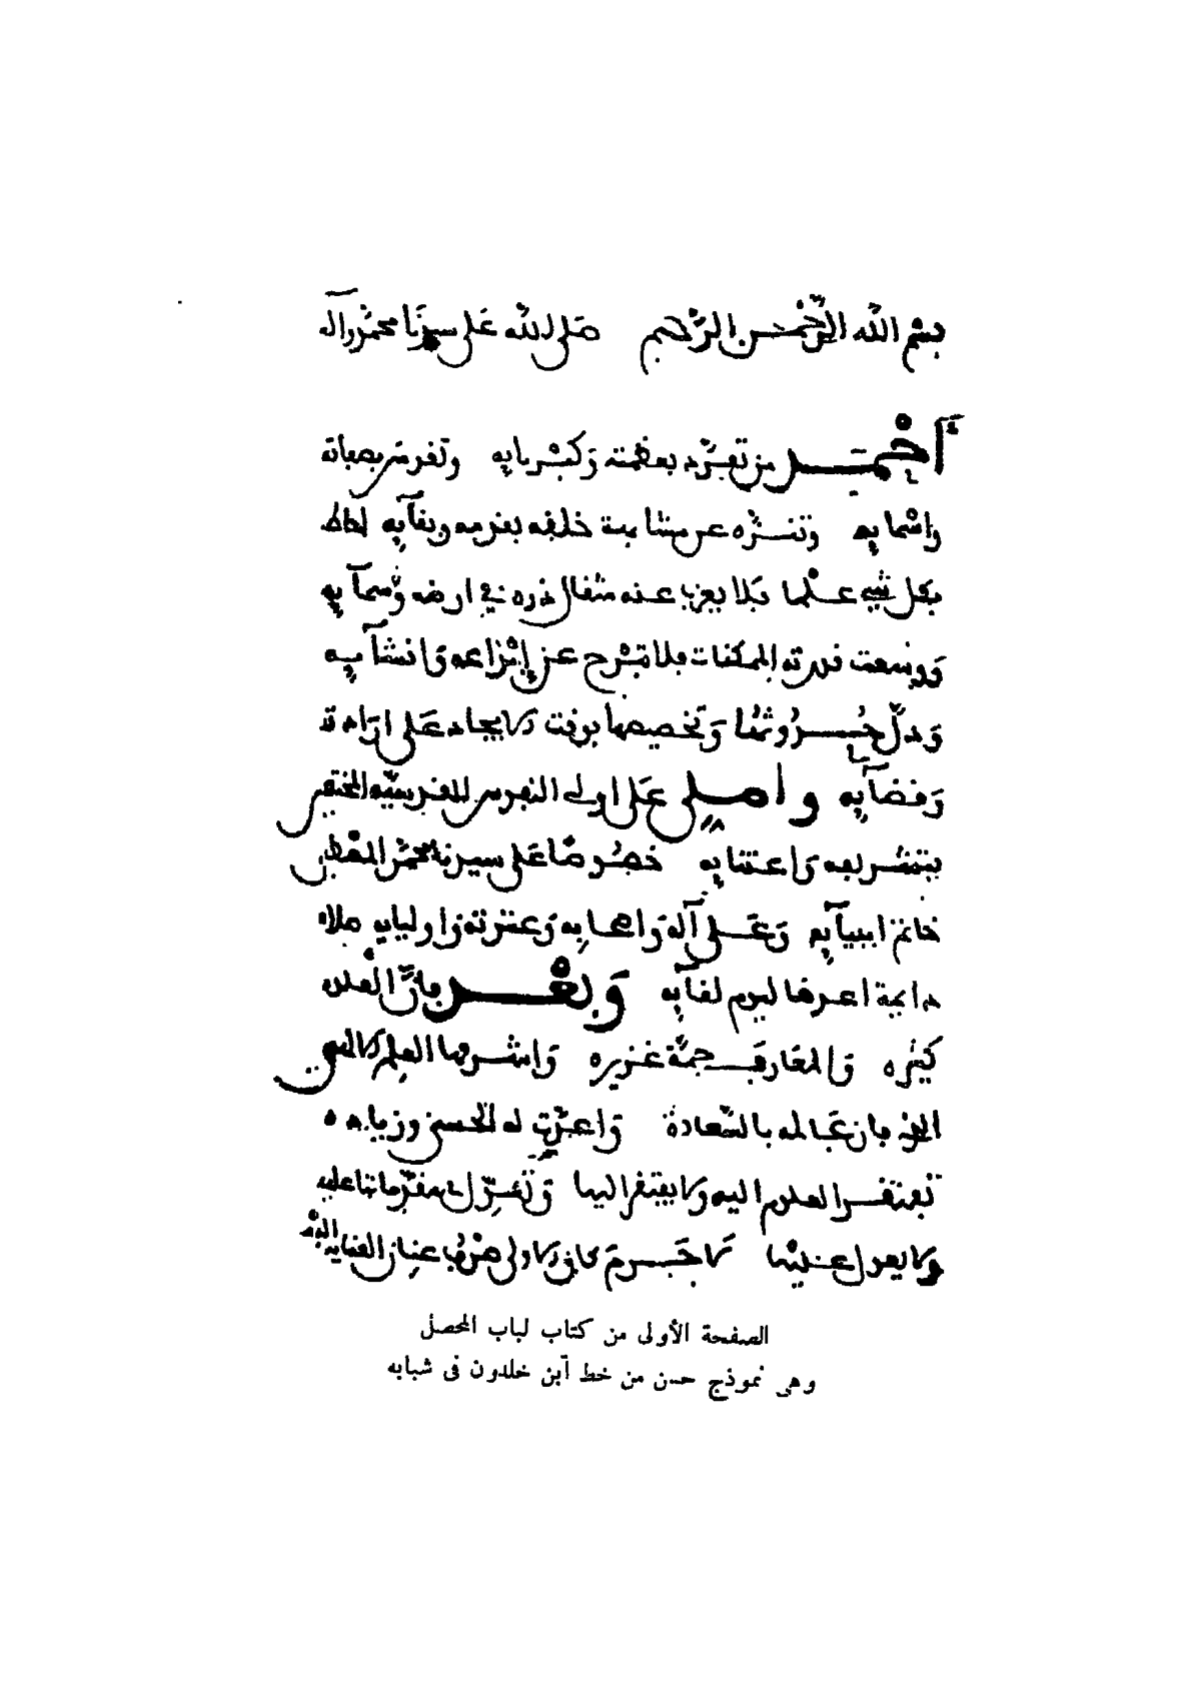 بسم الله الرحمن الرحيم صلى الله على سيدنا محمد وآله
أحمد من تفرد بعظمته وكبريايه وتقدس بصفاته
واسمايه وتنزه عن مشابهة خلقه بقدمه وبقآيه أحاط
بكل شيء علما فلا يعزب عنه مثقال ذره في ارضه وسمآيه
ووسعت قدرته الممكنات فلا تبرح عن إبْداعه وانشآيه
ودل حدوثها وتخصيصها بوقت الايجاد على ارادته
وقضآيه واصلي على اولي النفوس القدسية
بتشريفه واعتنايه خصوصا على سيدنا محمد المصطفى
خاتم انبيآيه وعلى آله واصحابه وعترته واوليايه صلاة
دايمة اعدها ليوم لقآيه وبعد فإن العلوم
كثيره والمعارف جمة غزيره واشرفها العلم الالهي
الذي فاز عالمه بالسعادة واعدت له الحسنى وزياده
تفتقر العلوم اليه ولا يفتقر اليها وتعول مقدماتها عليه
ولا يعول عليها لا جرم كان الاولى صرف عنان العنايه اليه
الصفحة الأولى من كتاب لباب المحصل
وهى نموذج حسن من خط آبن خلدون فى شبابه